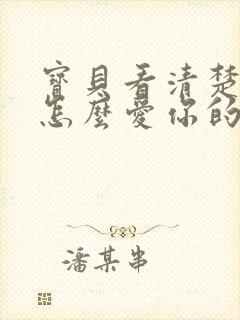 寶貝看清楚
怎麼愛你的
潘某串